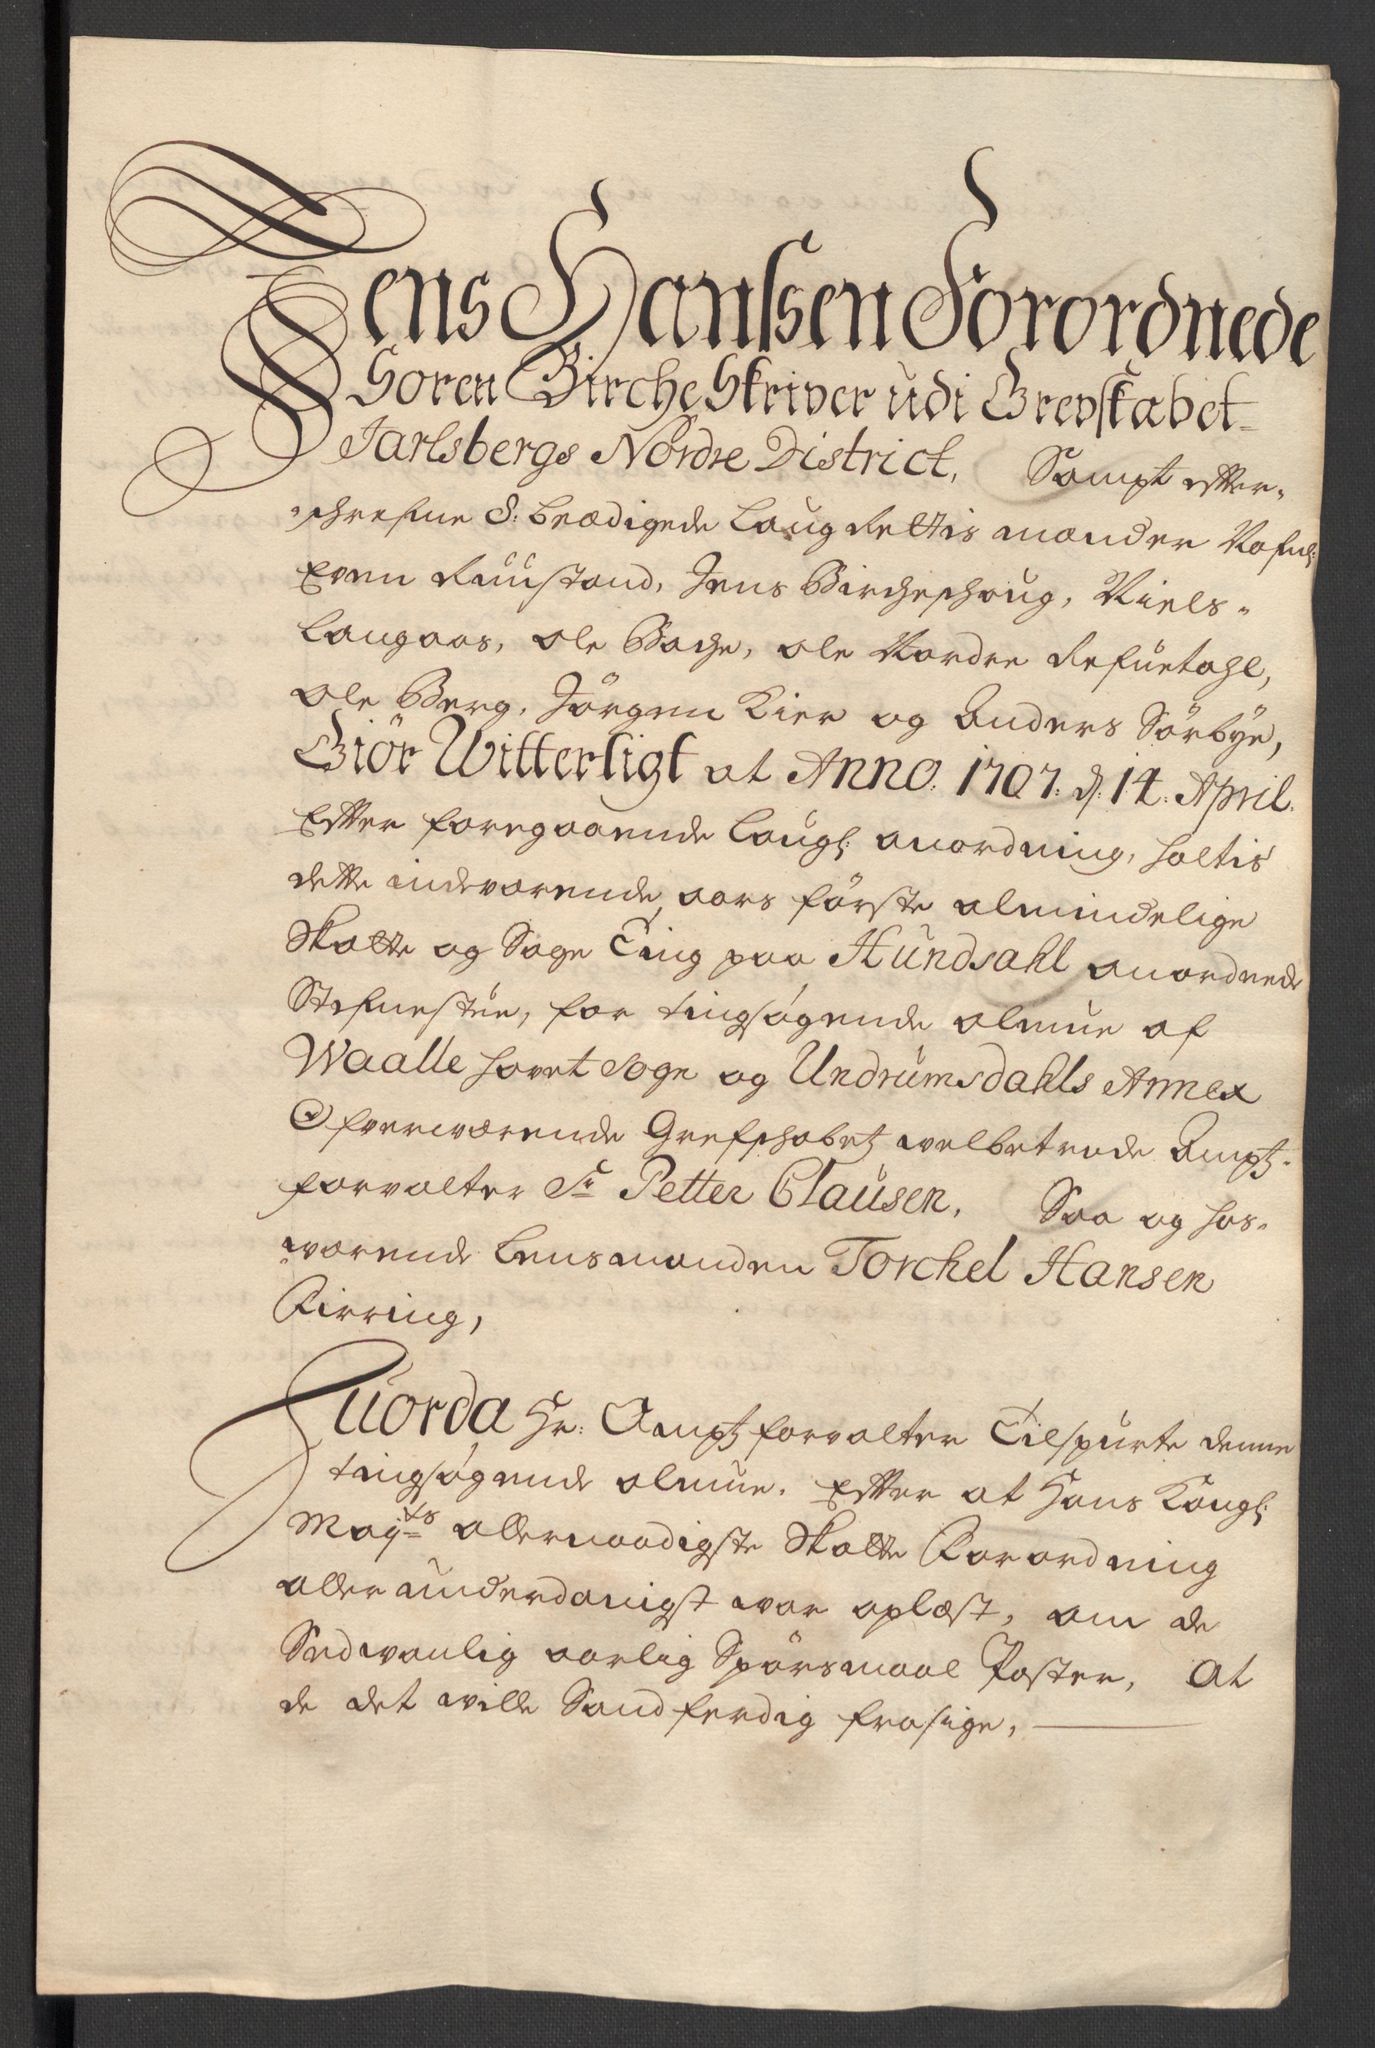 Jens Hanssen Forordnede
Soren Birche Skriver udi Grevskabet
Jarlsbergs Nordre District, Sampt efter-
schrefne 8: beædigede Laug Rettis mænder Nafnl:
Even Ruustand, Jens Bircheshoug, Niels
Langaas, Ole Bache, Ole Nordre Refuetahl,
Ole Berg, Jörgen Kier og Anders Sörbye,
Giör Witterligt at Anno. 1707. d: 14. April.
Efter foregaaende Laugl: anordning, holtis
dette indeværende aars förste almindelige
Skatte og Sage Ting paa Hundsahl anordnede
Stefnestüe, for tingsøgende almue af
Waalle hovet Sogn og Undrumsdahls Annex
Ofverwærende Grefschabetz welbetrode Ampt-
forvalter Sr Petter Clausen, Saa og hos-
wærende Lensmanden Torchel Hansen
Firring,
Huorda Hr: Amptforvalter Tilspurte denne
tingsøgende almue. Efter at Hans Kongl:
Majts allernaadigste Skatte Forordning
aller underdanigst war oplæst, om de
Sedwanlig aarlig Spörsmaal Poster, At
de det wille Sandferdig frasige,